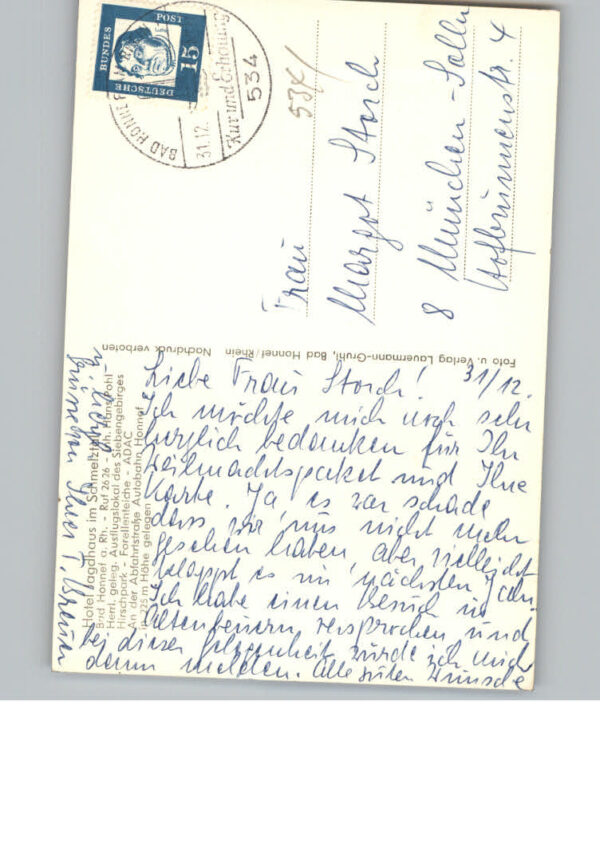 DEUTSCHE
BUNDES
POST
15
BAD HONNEF
31.12.
Kur und Erholung
534
534/
Frau
Margot Storch
8 München-Solln
Hofbrunnenstr. 4
Foto u. Verlag Lauermann-Gruhl, Bad Honnef/Rhein Nachdruck verboten
Hotel Jagdhaus im Schmelztal
Bad Honnef a. Rh. - Ruf 2626 - Inh. Hans Pohl
Herrl. geleg. Ausflugslokal des Siebengebirges
Hirschpark - Forellenteiche - ADAC
An der Abfahrtstraße Autobahn Honnef
in 225 m Höhe gelegen
31/12.
Liebe Frau Storch!
Ich möchte mich noch sehr
herzlich bedanken für Ihr
Weihnachtspaket und Ihre
Karte. Ja, es war schade
dass wir uns nicht mehr
gesehen haben, aber vielleicht
klappt es im nächsten Jahr.
Ich habe einen Besuch in
versprochen und
bei dieser Gelegenheit würde ich mich
dann melden. Alle guten Wünsche
u. liebe
Ihrer F.